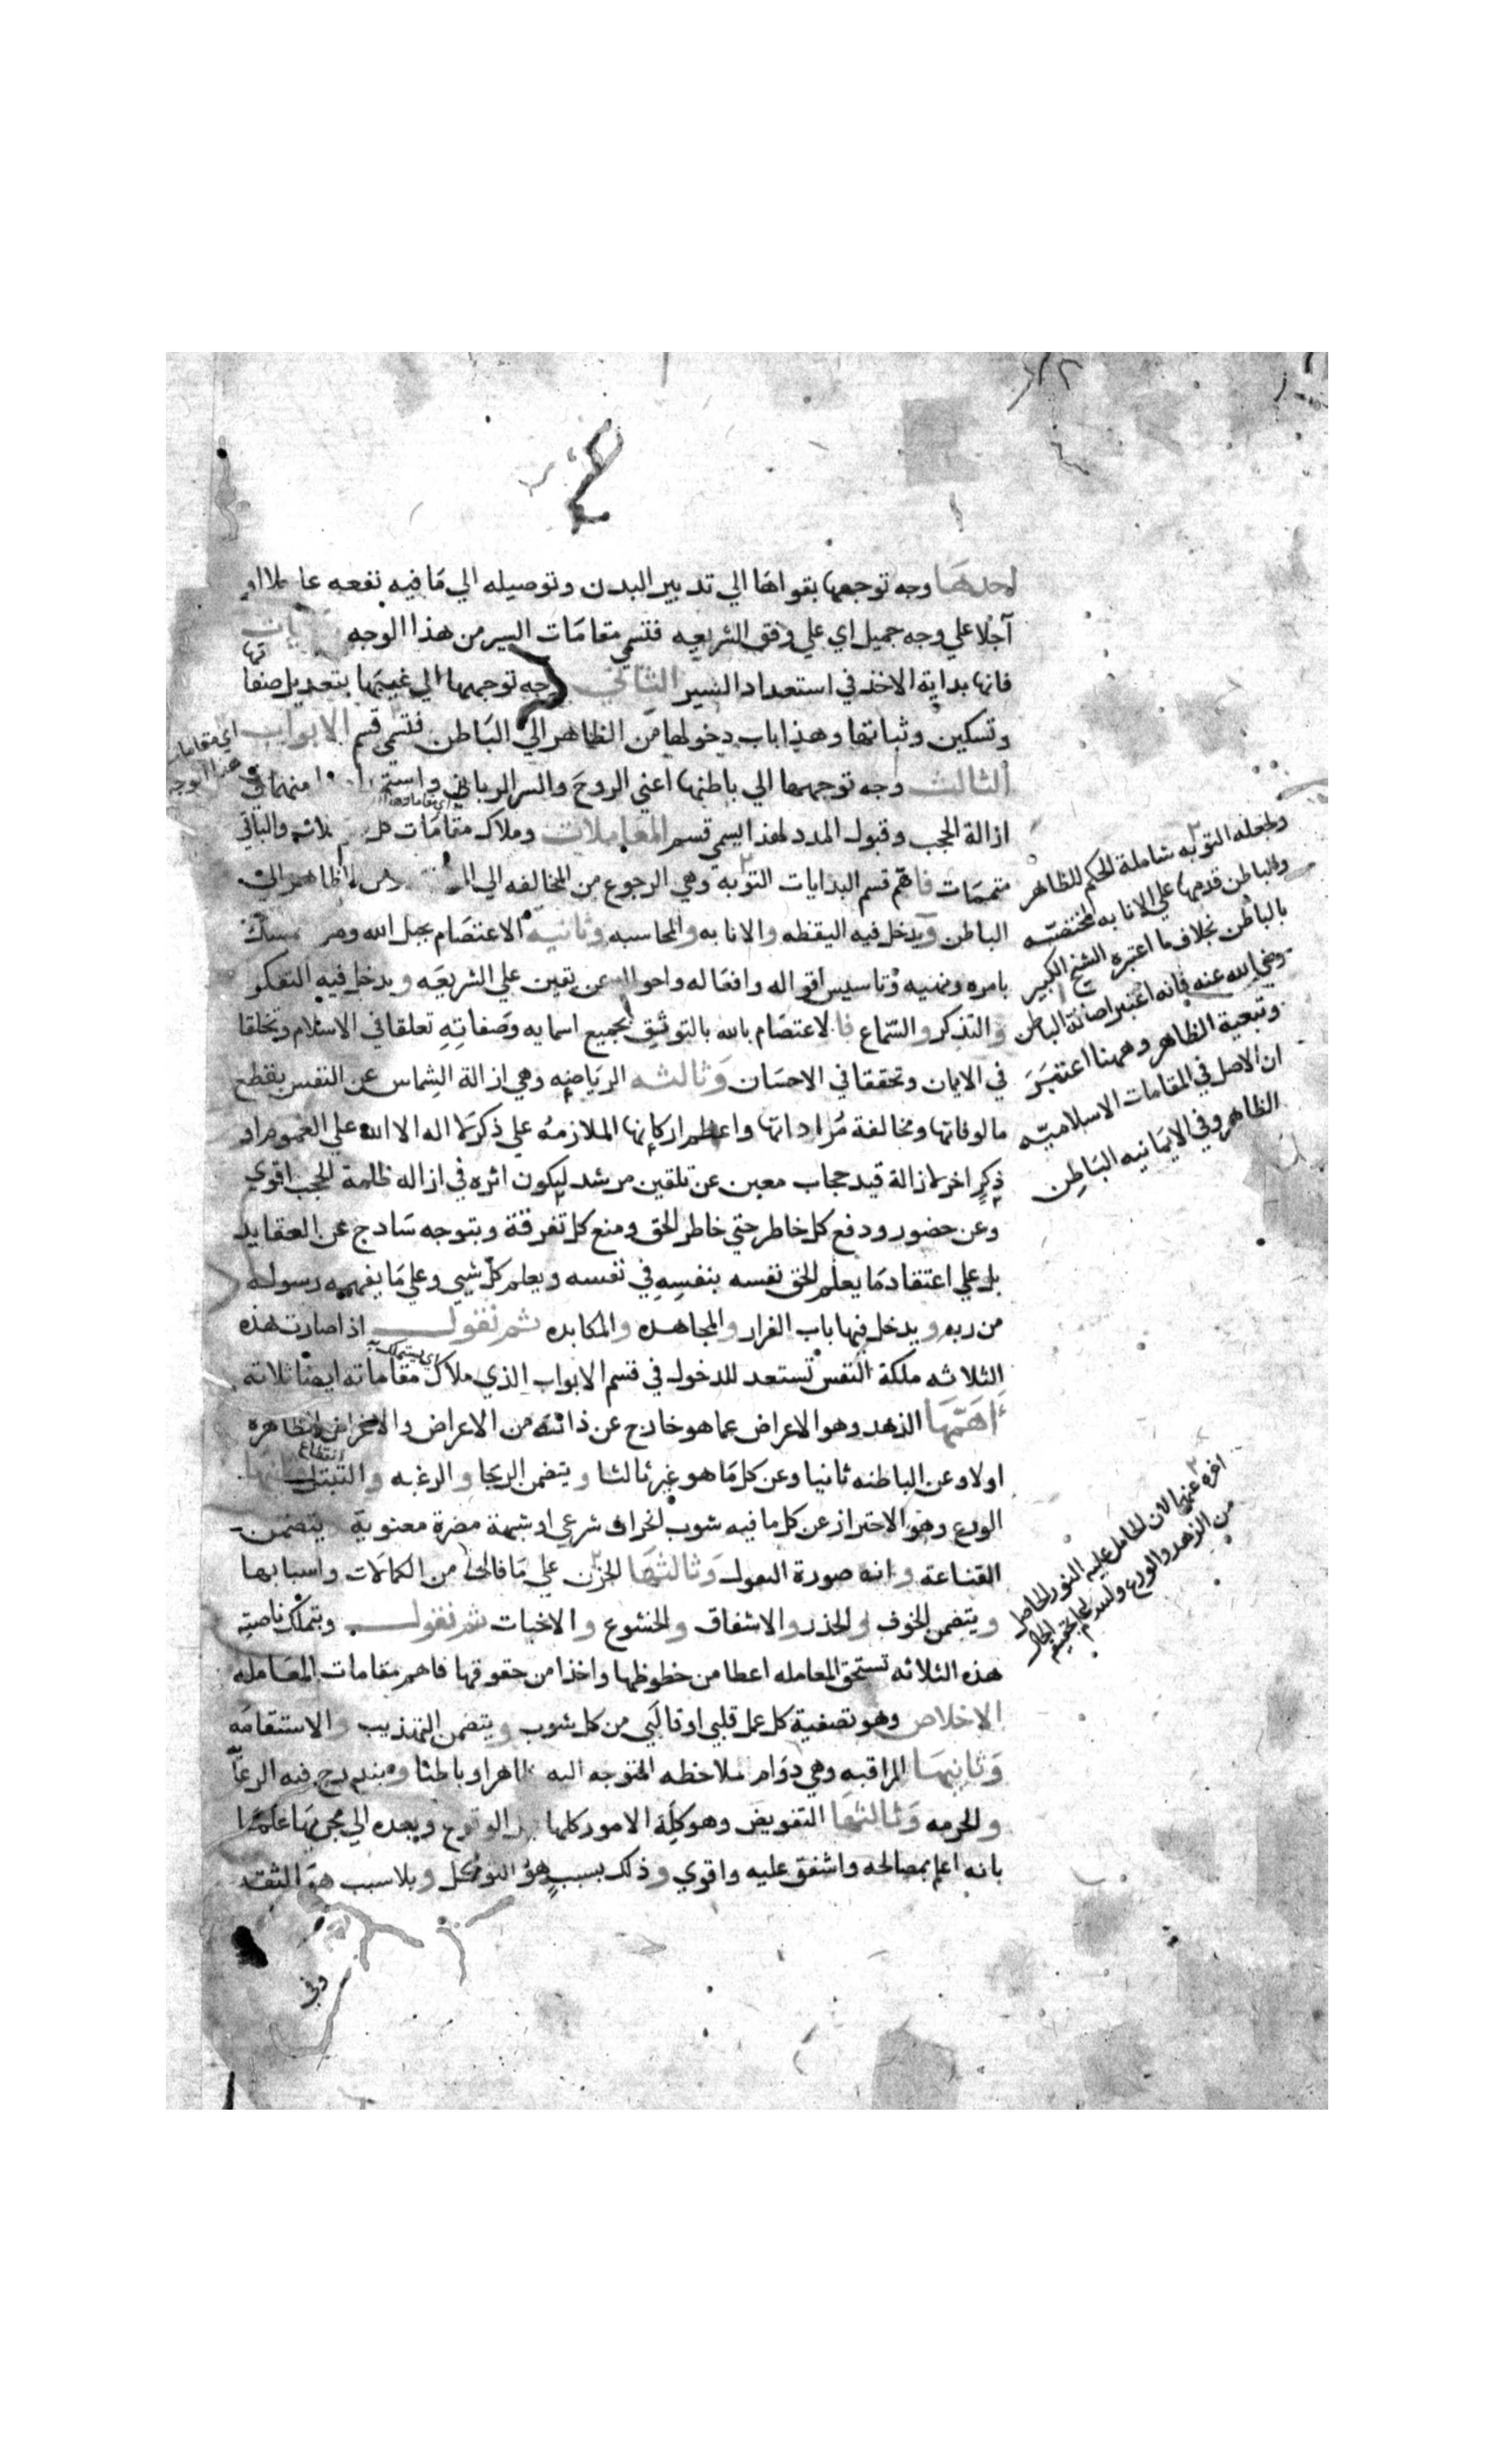 احدها وجه توجهها بقواها الي تدبير البدن وتوصيله الي ما فيه نفعه عاجلا او
آجلا علي وجه جميل اي علي وفق الشريعه فتسمي مقامات السير من هذا الوجه
فانها بداية الاخذ في استعداد السير الثاني وجه توجهها الي غيبتها بتعديل صفا
تها
وتسكين وثباتها وهذا باب دخولها من الظاهر الي الباطن فتسمي قسم الابواب
اي مقامات
هذا الوجه
الثالث وجه توجهها الي باطنها اعني الروح والسر الرباني منهما في
ازالة الحجب وقبول المدد لهذا يسمي قسم المعاملات وملاك مقامات والباقي
متممات فاهم قسم البدايات التوبة وهي الرجوع من المخالفه الي
الباطن ويدخل فيه اليقظه والانابه والمحاسبه وثانيه الاعتصام بحبل الله وهو
بامره ونهيه وتاسيس اقواله وافعاله واحواله عن يقين علي الشريعه ويدخل فيه التفكر
والتذكر والسماع فالاعتصام بالله بالتوثيق بجميع اسمايه وصفاته تعلقا في الاسلام وتخلقا
في الايمان وتحققا في الاحسان وثالثه الرياضه وهي ازالة الشماس عن النفس بقطع
مالوفاتها ومخالفة مراداتها واعظم اركانها الملازمه علي ذكر لا اله الا الله علي العموم او
ذكر اخر لازالة قيد حجاب معين عن تلقين مرشد ليكون اثره في ازاله ظلمة الحجب اقوي
وعن حضور ودفع كل خاطر حتي خاطر الحق ومنع كل تفرقة وبتوجه ساذج عن العقايد
بل علي اعتقاد ما يعلم الحق نفسه بنفسه في نفسه ويعلم كل شيي وعلي ما يفهمه رسوله
من ربه ويدخل فيها باب الفرار والمجاهده والمكابده ثم نقول اذا صارت هذه
الثلاثه ملكة النفس تستعد للدخول في قسم الابواب الذي ملاك مقاماته ايضا ثلاثه
اهمها الذهد وهو الاعراض عما هو خارج عن ذاته من الاعراض والاغراض الظاهره
اولا وعن الباطنه ثانيا وعن كل ما هو غير ثالثا ويتضمن الرجا والرغبه والتبتل
انقطاع
الورع وهو الاحتراز عن كل ما فيه شوب انحراف شرعي او شبهة مضرة معنوية يتضمن
القناعة وانه صورة وثالثها الحزن علي ما فات من الكمالات واسبابها
ويتضمن الخوف والحذر والاشفاق والخشوع والاخبات ثم نقول وبتملك ناصية
هذه الثلاثه تستحق المعامله اعطا من حظوظها واخذا من حقوقها فاهم مقامات المعامله
الاخلاص وهو تصفية كل عمل قلبي او قالبي من كل شوب ويتضمن التهذيب والاستقامه
وثانيها المراقبه وهي دوام ملاحظه المتوجه اليه ظاهرا وباطنا ويندرج فيه الرعا
والحرمه وثالثها التفويض وهو كلة الامور كلها الوقوع وبعده الي مجريها علما
بانه اعلم بمصالحه واشفق عليه واقوي وذلك بسبب هو التوكل وبلا سبب هو الثقه
وفي
ولجعله التوبه شاملة الحكم للظاهر
والباطن قدمها علي الانابه المختصه
بالباطن بخلاف ما اعتبره الشيخ الكبير
رضي الله عنه فانه اعتبر اصالة الباطن
وتبعية الظاهر وههنا اعتبر
ان الاصل في المقامات الاسلاميه
الظاهر وفي الايمانيه الباطن
اخره عنهما لان الحامل عليه النور الحاصل
من الزهد والورع